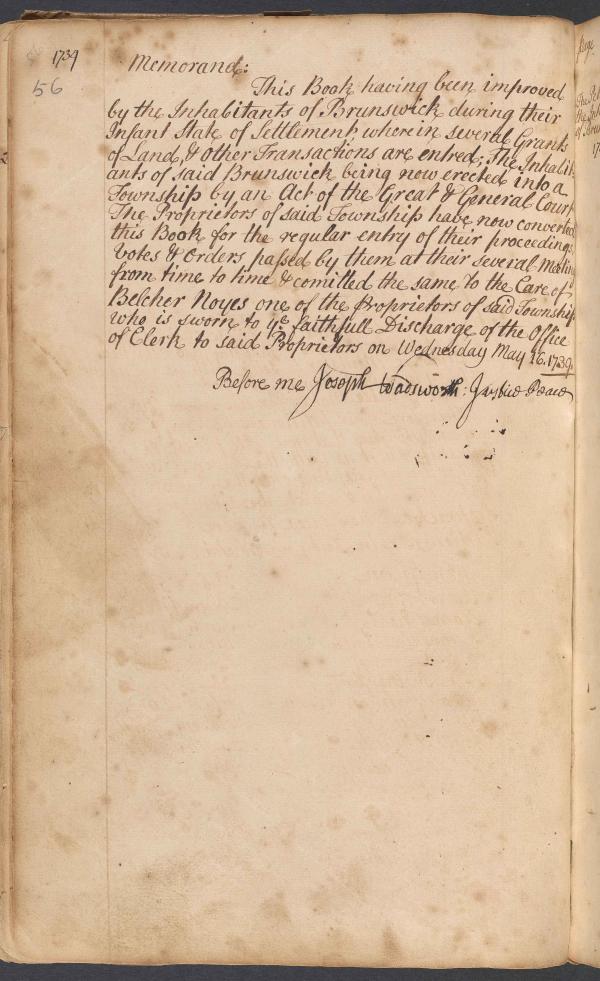 1739
56
Memorand:
This Book having been improved
by the Inhabitants of Brunswick during their
Infant State of Settlement, wherein several Grants
of Land, & other Transactions are entred; The Inhabit
ants of said Brunswick being now erected into a
Township by an Act of the Great & General Court
The Proprietors of said Township have now converted
this Book for the regular entry of their proceedings
Votes & Orders passed by them at their several Meeting
from time to time & comitted the same to the Care of
Belcher Noyes one of the Proprietors of said Township
who is sworn to ye faithfull Discharge of the Office
of Clerk to said Proprietors on Wednesday May 16. 1739.
Before me Joseph Wadsworth: Justice Peace
Page